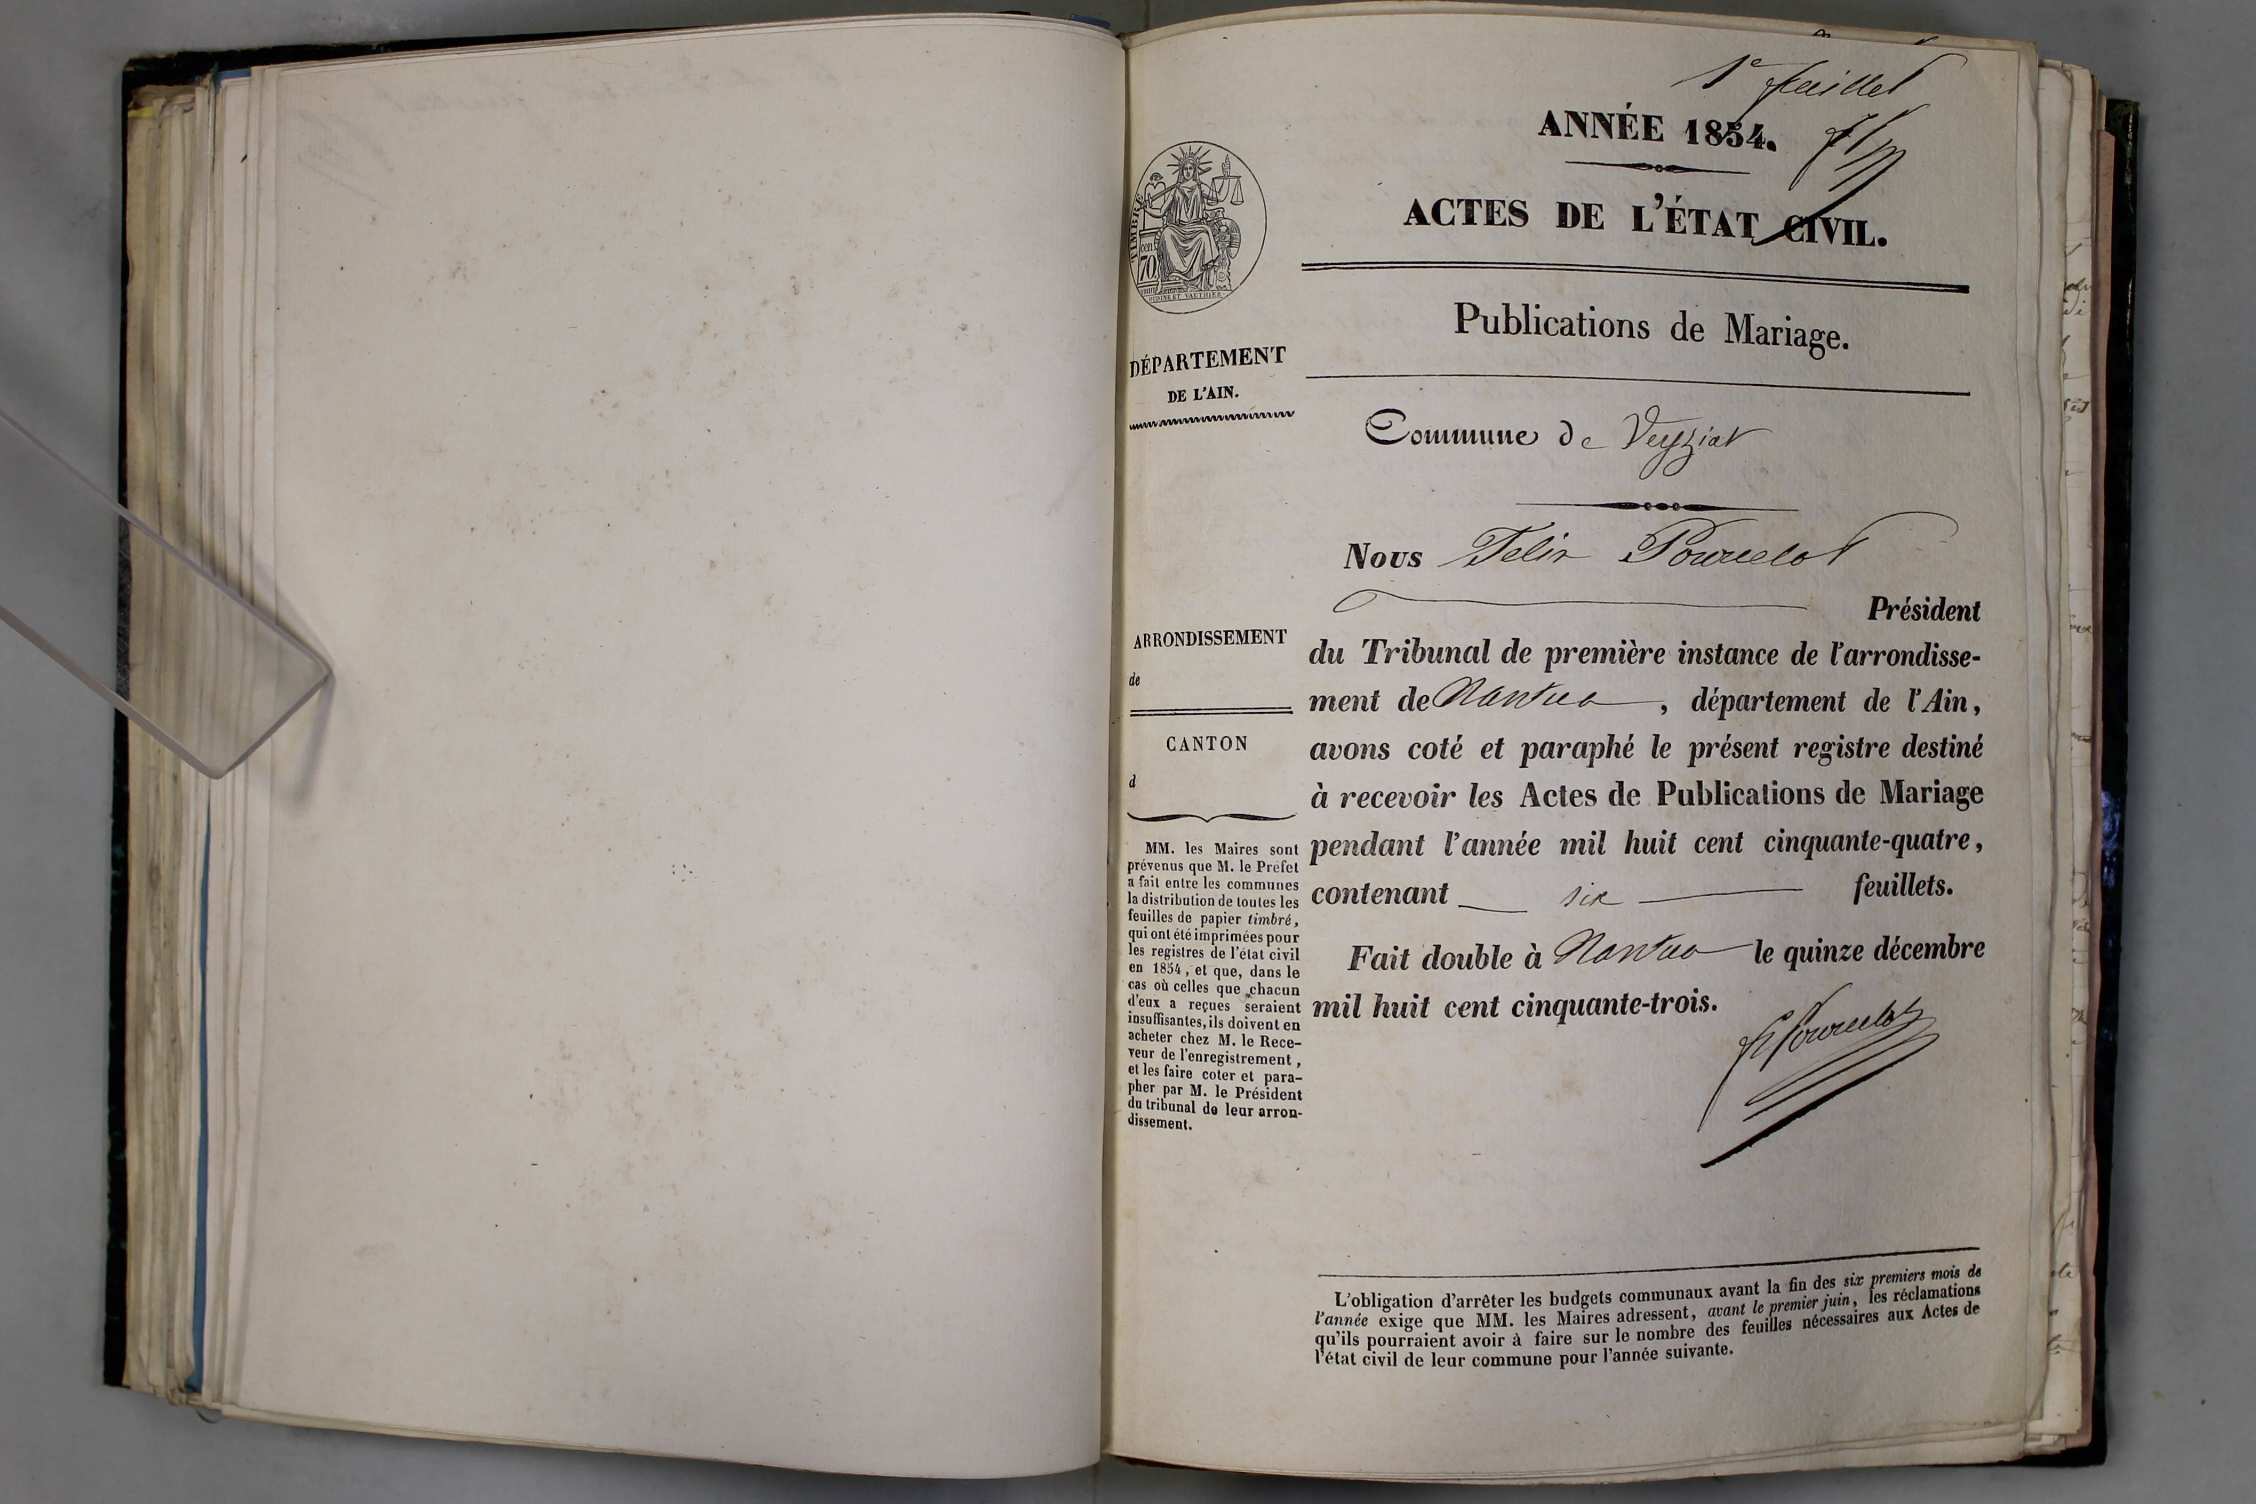 1e feuillet
ANNÉE 1854.
ACTES DE L'ÉTAT CIVIL.
TIMBRE
70
cent.
OUDINÉ ET VAUTHIER
Publications de Mariage.
DÉPARTEMENT
DE L'AIN.
Commune de Veyziat
Nous Felix Pourcelot
Président
du Tribunal de première instance de l'arrondisse-
ment de Nantua, département de l'Ain,
avons coté et paraphé le présent registre destiné
à recevoir les Actes de Publications de Mariage
pendant l'année mil huit cent cinquante-quatre,
contenant six feuillets.
Fait double à Nantua le quinze décembre
mil huit cent cinquante-trois.
F Pourcelot
ARRONDISSEMENT
de
CANTON
d
MM. les Maires sont
prévenus que M. le Préfet
a fait entre les communes
la distribution de toutes les
feuilles de papier timbré,
qui ont été imprimées pour
les registres de l'état civil
en 1854, et que, dans le
cas où celles que chacun
d'eux a reçues seraient
insuffisantes, ils doivent en
acheter chez M. le Rece-
veur de l'enregistrement,
et les faire coter et para-
pher par M. le Président
du tribunal de leur arron-
dissement.
L'obligation d'arrêter les budgets communaux avant la fin des six premiers mois de
l'année exige que MM. les Maires adressent, avant le premier juin, les réclamations
qu'ils pourraient avoir à faire sur le nombre des feuilles nécessaires aux Actes de
l'état civil de leur commune pour l'année suivante.